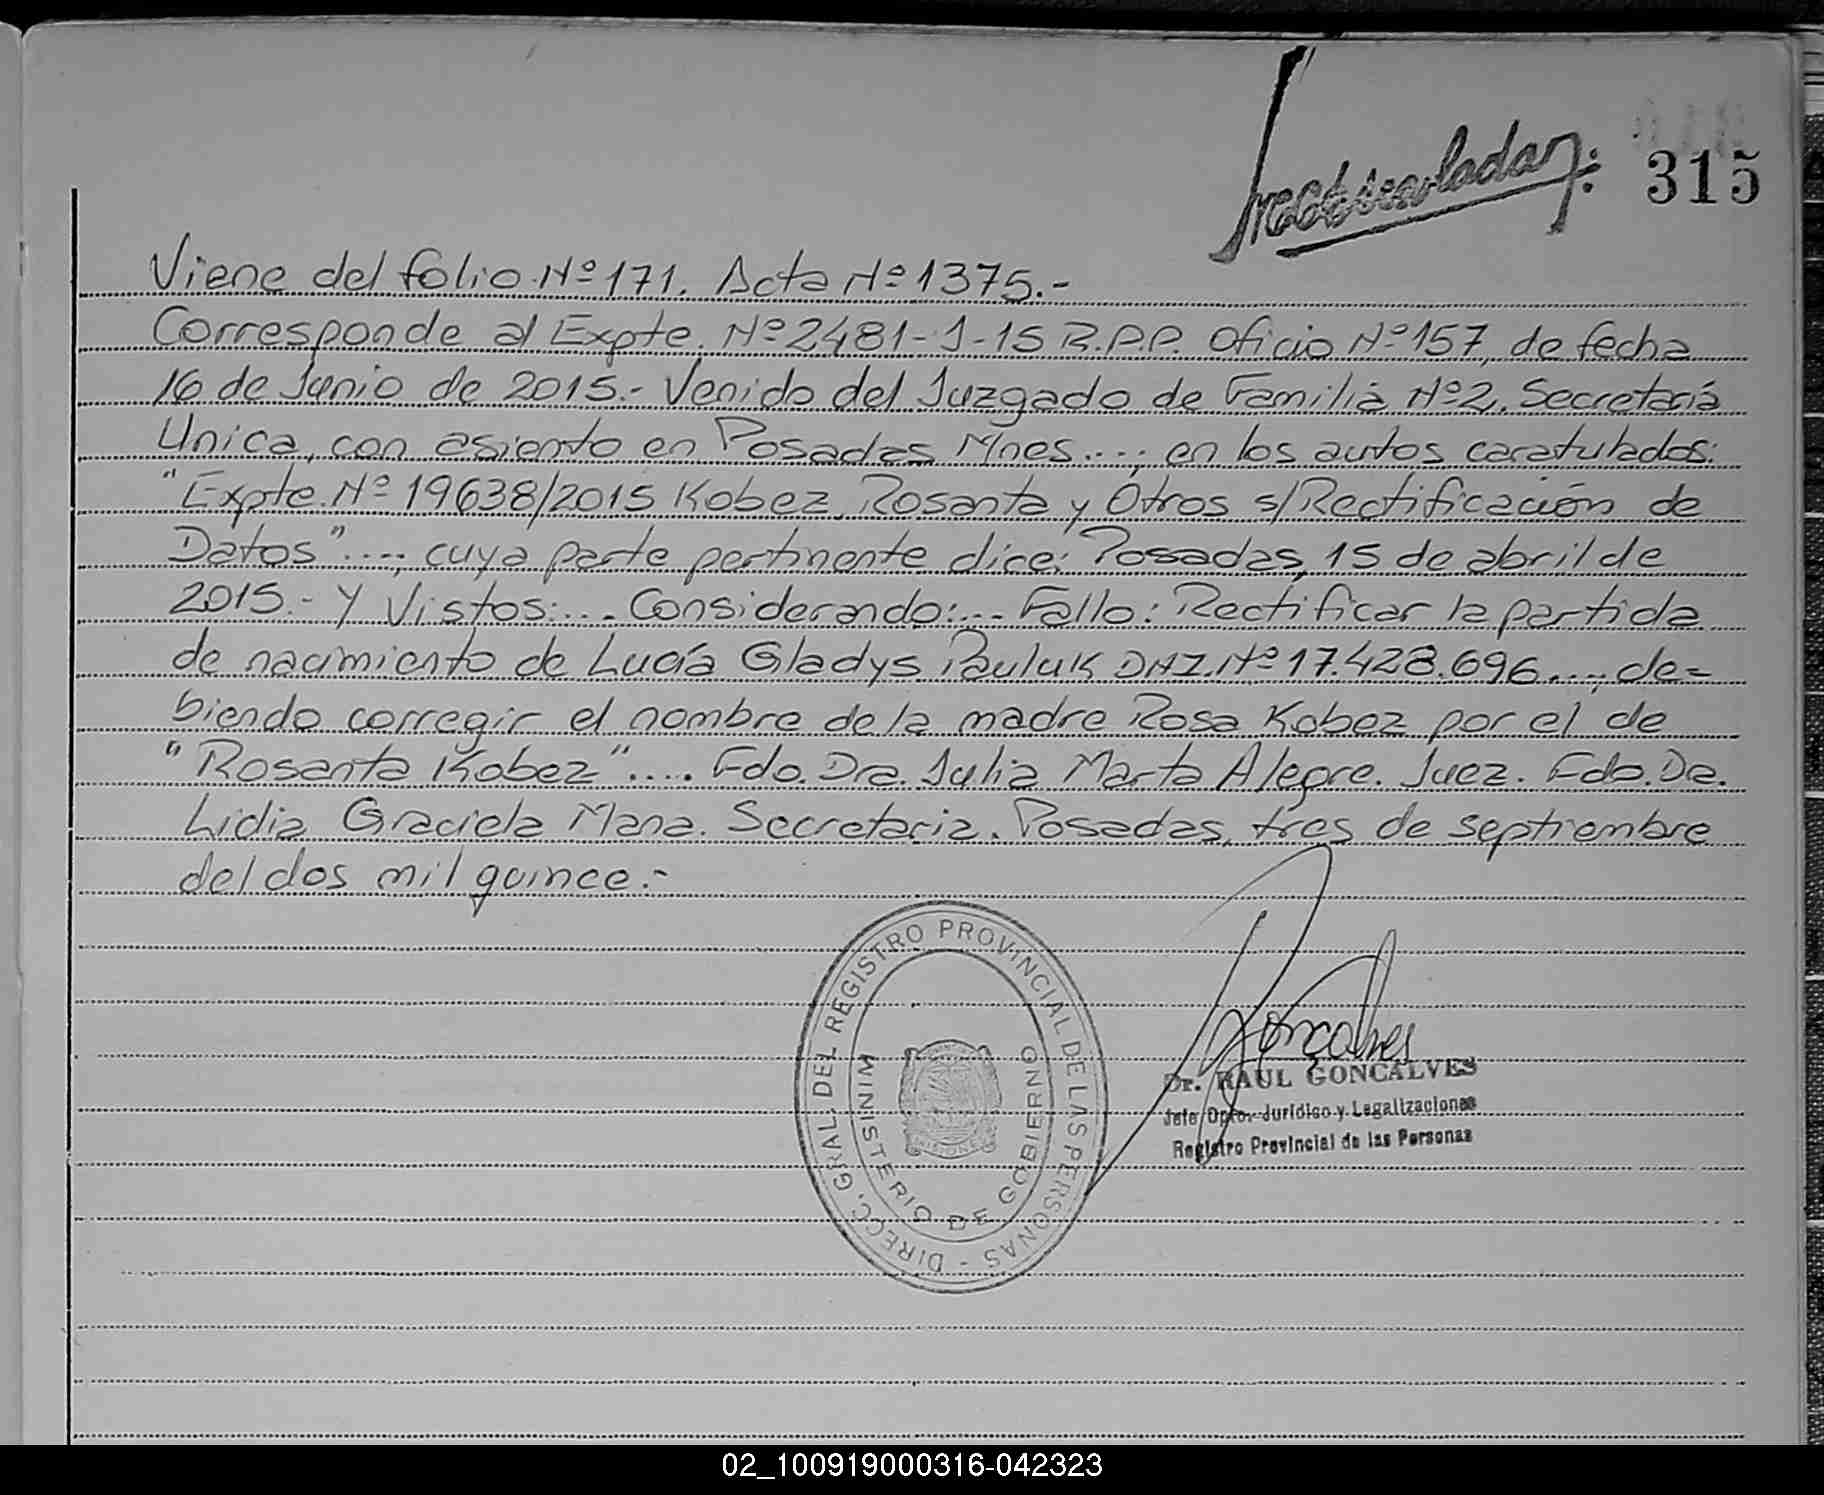 315
Viene del folio Nº 171. Acta Nº 1375.-
Corresponde al Expte. Nº 2481-J-15 R.P.P. Oficio Nº 157, de fecha
16 de Junio de 2015.- Venido del Juzgado de Familia Nº 2, Secretaría
Unica, con asiento en Posadas Mnes....; en los autos caratulados:
"Expte. Nº 19638/2015 Kobez, Rosanta y Otros s/Rectificación de
Datos"...., cuya parte pertinente dice: Posadas, 15 de abril de
2015.- Y Vistos:.... Considerando:.... Fallo: Rectificar la partida
de nacimiento de Lucía Gladys Pauluk DNI. Nº 17.428.696...., de=
biendo corregir el nombre de la madre Rosa Kobez por el de
"Rosanta Kobez"..... Fdo. Dra. Julia Marta Alegre. Juez. Fdo. Dra.
Lidia Graciela Mana. Secretaria. Posadas, tres de septiembre
del dos mil quince.-
DIRECC. GRAL. DEL REGISTRO PROVINCIAL DE LAS PERSONAS -
MINISTERIO DE GOBIERNO
Goncalves
Dr. RAUL GONCALVES
Jefe Dpto. Jurídico y Legalizaciones
Registro Provincial de las Personas
02_100919000316-042323